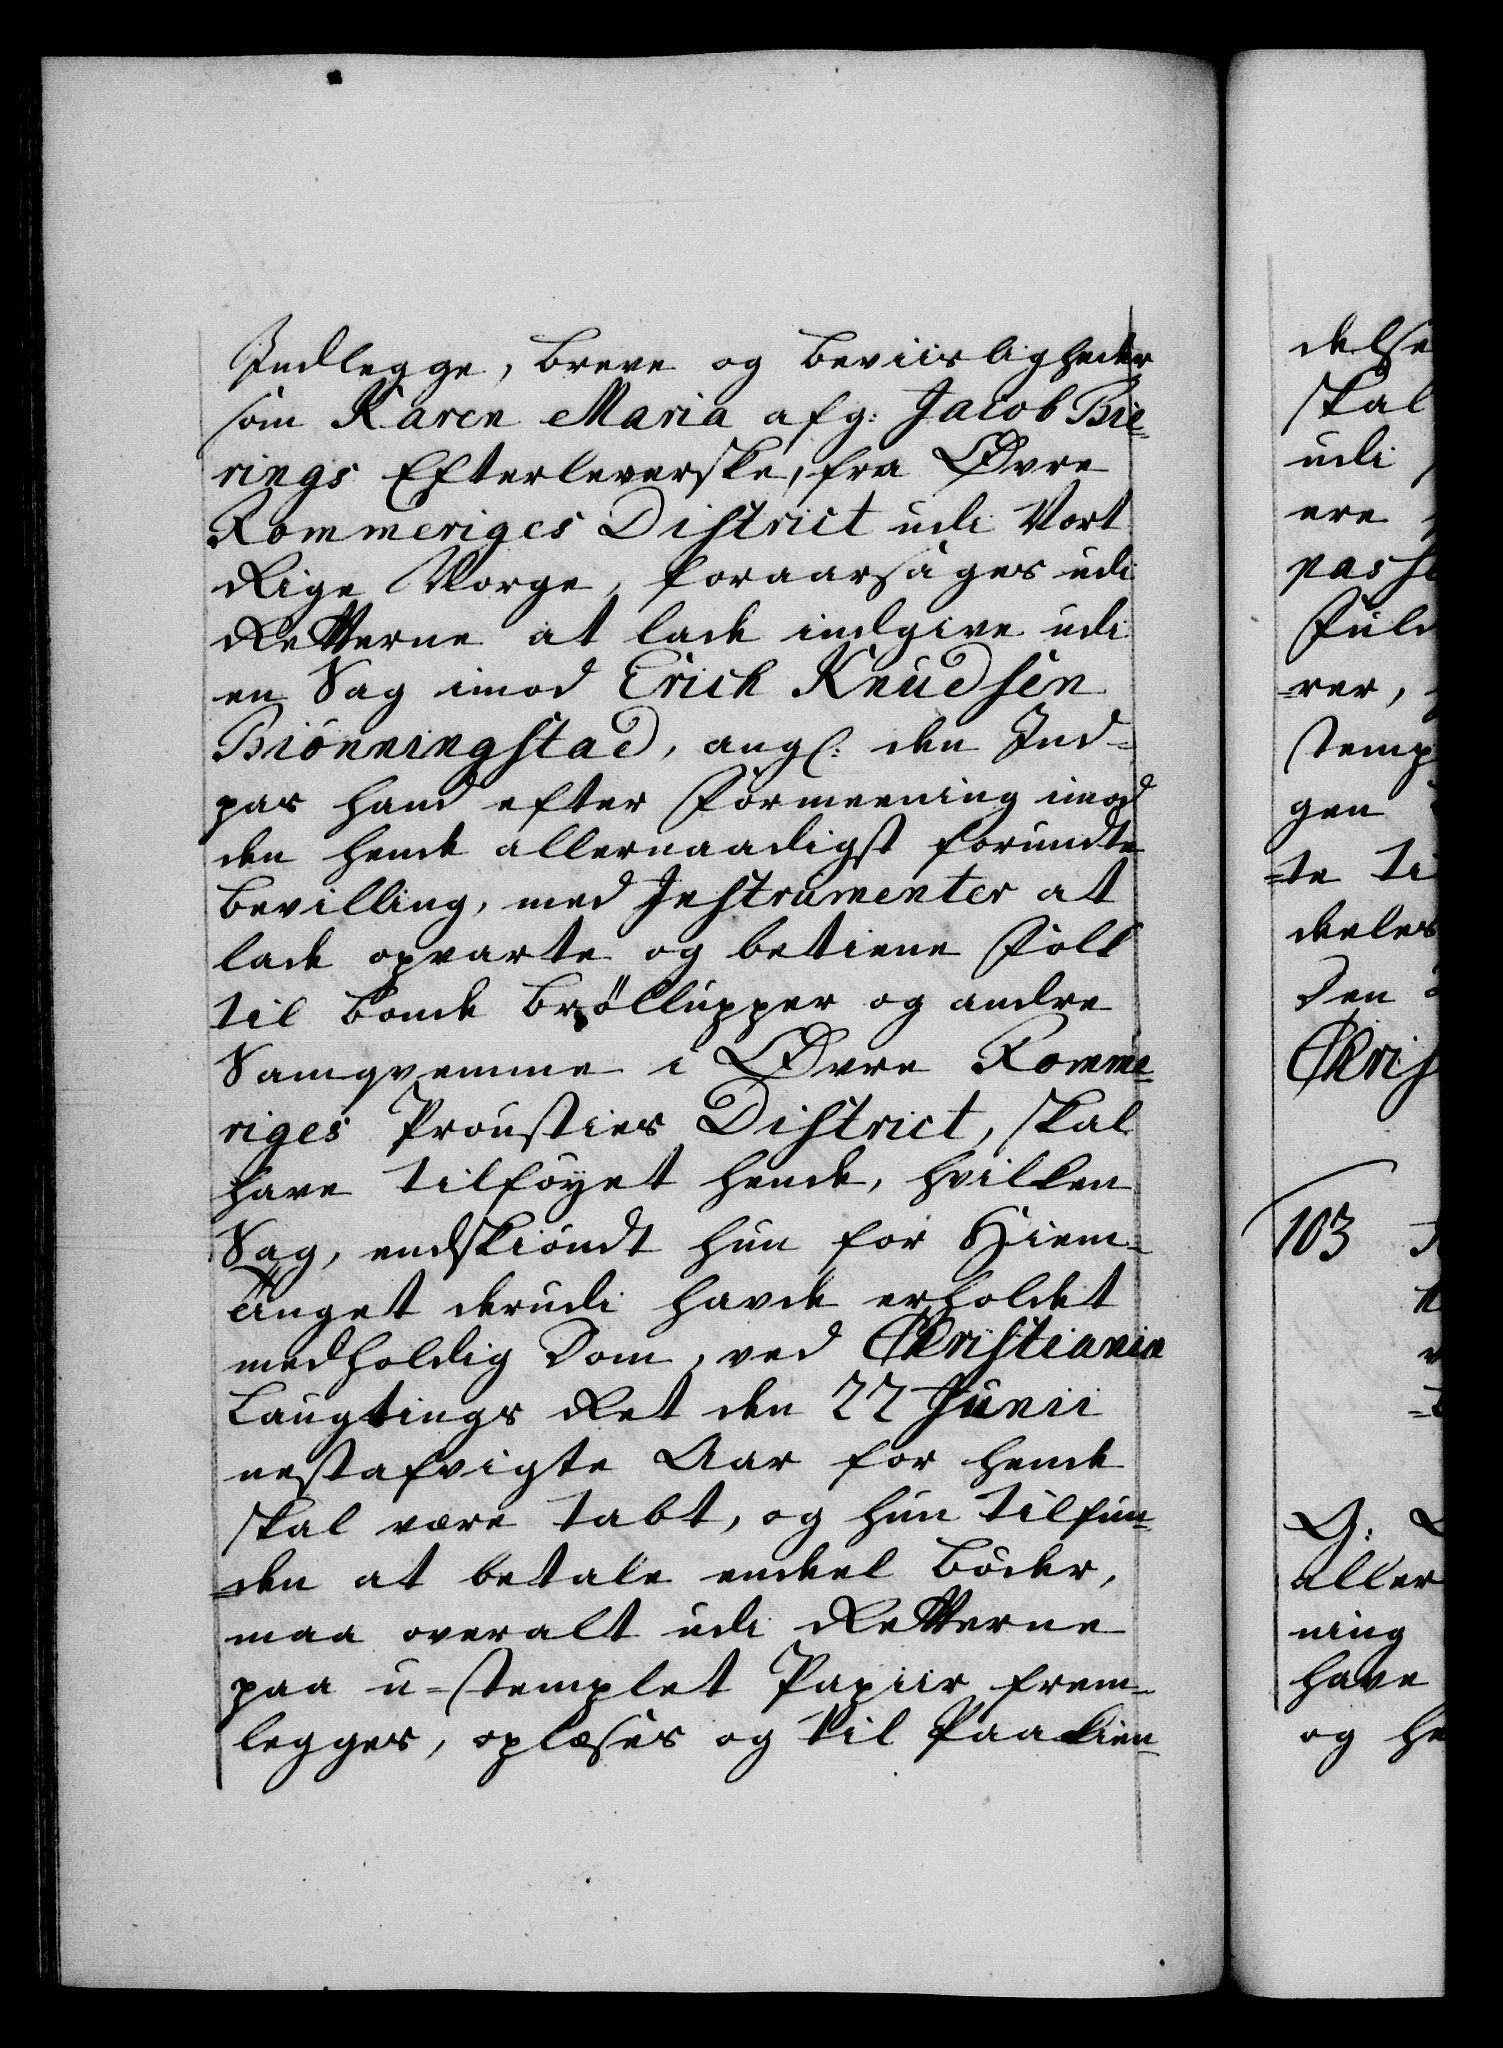 Indlegge, breve og beviisligheder
som Karen Maria afg: Jacob Bie-
rings Efterleverske, fra Øvre
Rommeriges District udi Vort
Rige Norge, foraarsages udi
Retterne at lade indgive udi
en Sag imod Erick Knudsen
Biönningstad, angl: den Ind-
pas hand efter Formeening imod
den hende allernaadigst forundte
bevilling, med Instrumenter at
lade opvarte og betiene Folk
til bonde bröllupper og andre
Samqvemme i Øvre Romme-
riges Prousties District, skal
have tilføyet hende, hvilken
Sag, endskiöndt hun for Hiem-
tinget derudi havde erholdet
medholdig Dom, ved Christiania
Laugtings Ret den 22 Junii
nestafvigte Aar for hende
skal være tabt, og hun tilfun-
-den at betale endeel böder,
maa overalt udi Retterne
paa u-stemplet Papiir frem-
legges, oplæses og til Paakien-
delse
skal
udi
ere
passe
Fuld
-rer,
stemp
gen
-te ti
deeles
Den
Christ
103
G:
aller
ning
have
og he